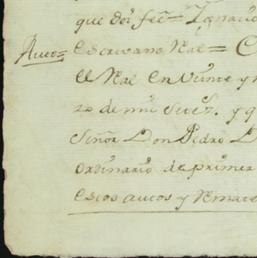 que doi fee= Ignacio
Autos= Escrivano Real= C
El Real En Veinte y
zo de mil Setez.s y q
Señor Don Pedro D
Ordinario de primer
estos autos y Remate